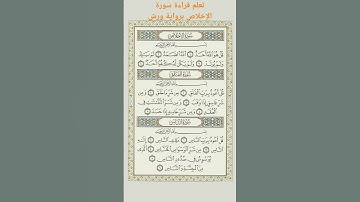 تعلم قراءة سورة
الإخلاص برواية ورش
سورة الإخلاص
قل هو الله أحد الله الصمد لم يلد
ولم يولد ولم يكن له كفؤا أحد
سورة الفلق
قل أعوذ برب الفلق من شر ما خلق ومن
شر غاسق إذا وقب ومن شر النفاثات في
العقد ومن شر حاسد إذا حسد
سورة الناس
قل أعوذ برب الناس ملك الناس إله
الناس من شر الوسواس الخناس الذي
يوسوس في صدور الناس
من الجنة والناس